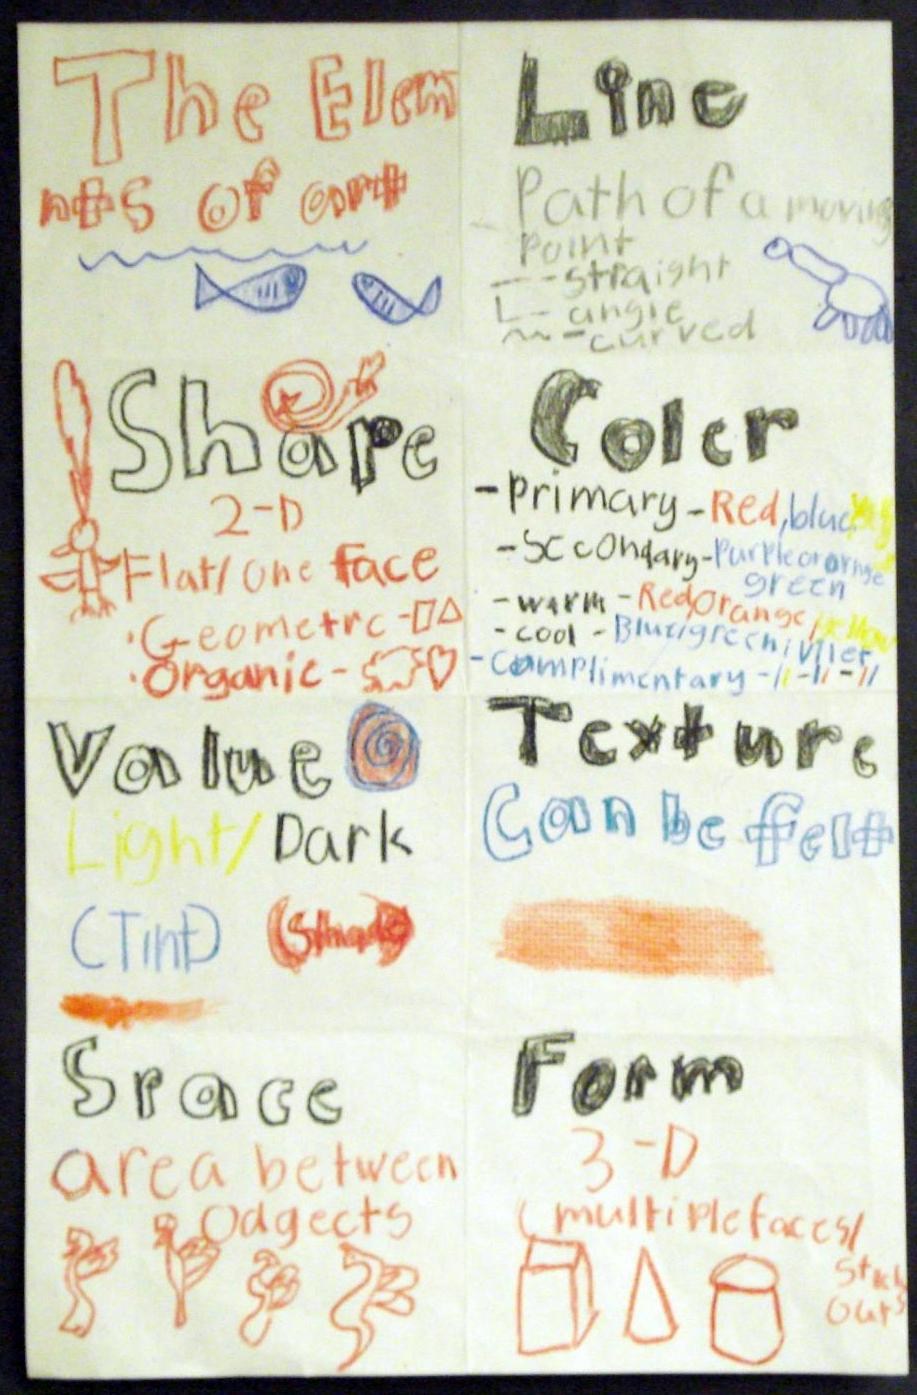 The Elem
nts of art
Line
Path of a moving
Point
straight
angle
curved
Shape
2-D
Flat/one face
Geometrc
Organic
Color
-Primary-Red,blue,
-Seccondary-Purple orornge
green
-warm-Red/Orange/yellow
-cool-Blue/green/
-camplimentary-
Value
Light/Dark
(Tint) (Shade)
Texture
Can be felt
Space
area between
odgects
Form
3-D
(multiple faces/
Sticks
out